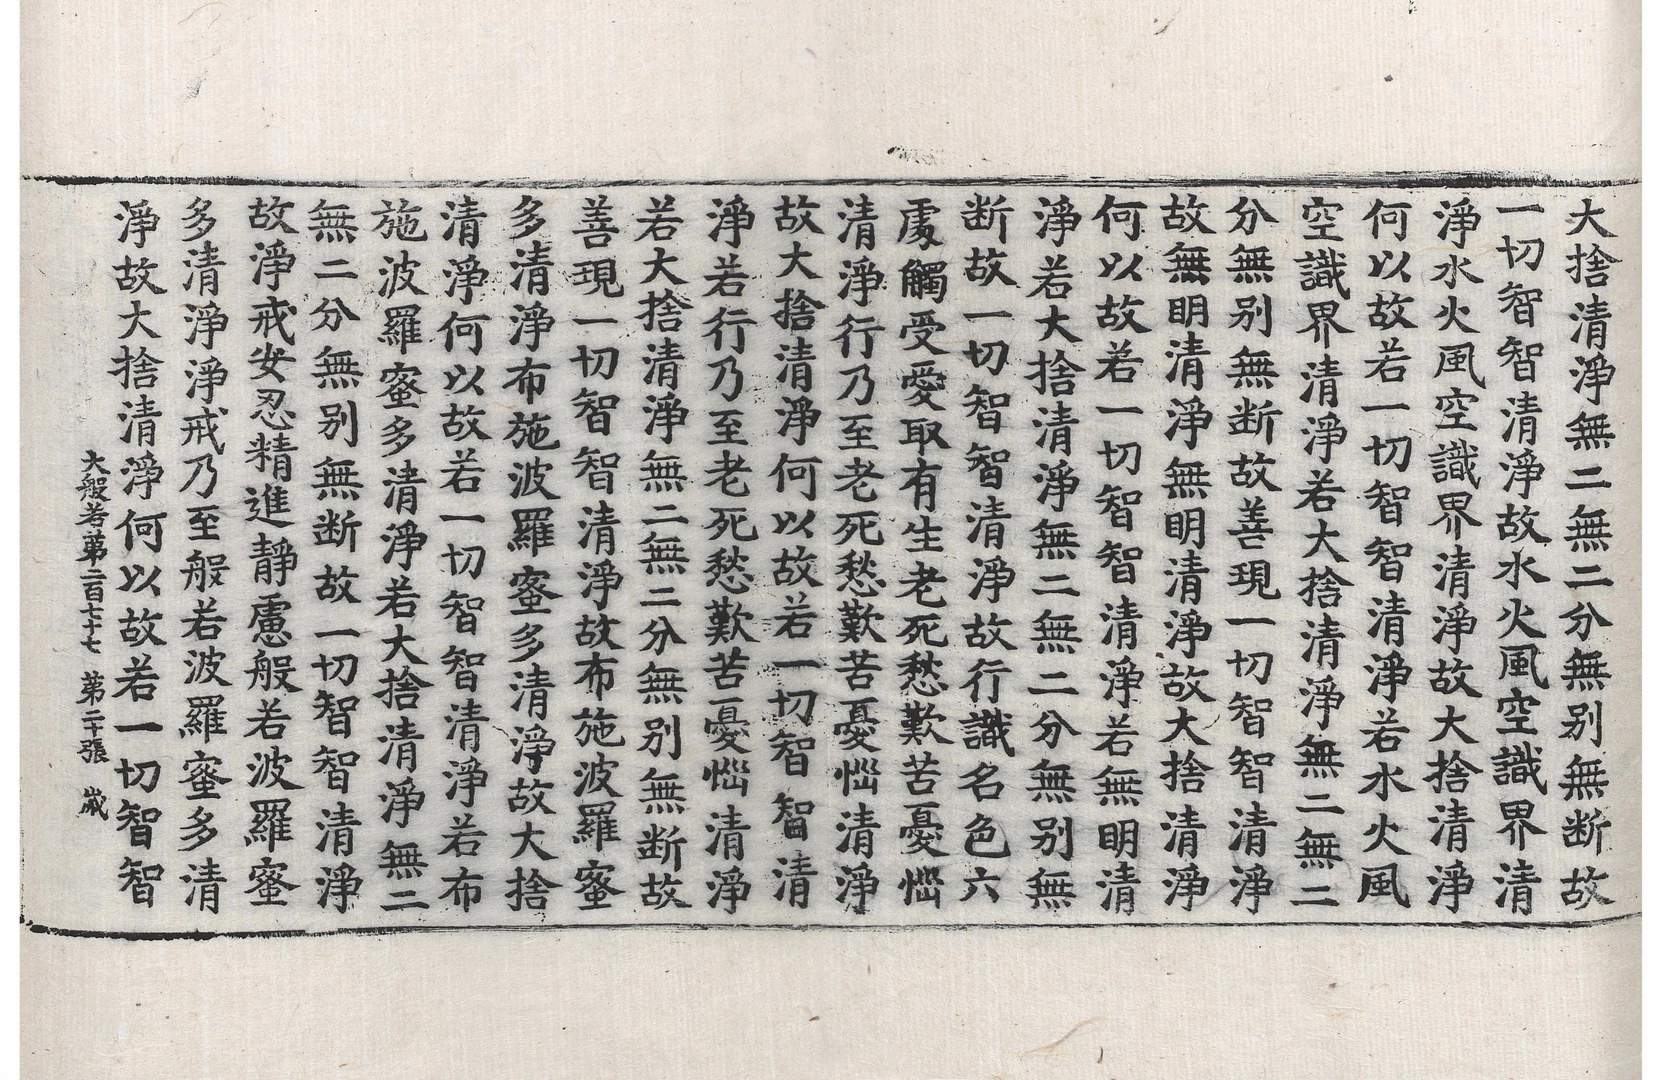 大捨清淨無二無二分無別無断故
一切智智清淨故水火風空識界清
淨水火風空識界清淨故大捨清淨
何以故若一切智智清淨若水火風
空識界清淨若大捨清淨無二無二
分無別無断故善現一切智智清淨
故無明清淨無明清淨故大捨清淨
何以故若一切智智清淨若無明清
淨若大捨清淨無二無二分無別無
断故一切智智清淨故行識名色六
處觸受愛取有生老死愁歎苦憂惱
清淨行乃至老死愁歎苦憂惱清淨
故大捨清淨何以故若一切智智清
淨若行乃至老死愁歎苦憂惱清淨
若大捨清淨無二無二分無別無断故
善現一切智智清淨故布施波羅蜜
多清淨布施波羅蜜多清淨故大捨
清淨何以故若一切智智清淨若布
施波羅蜜多清淨若大捨清淨無二
無二分無別無断故一切智智清淨
故淨戒安忍精進靜慮般若波羅蜜
多清淨淨戒乃至般若波羅蜜多清
淨故大捨清淨何以故若一切智智
大般若第二百七十七 第二十張 歲